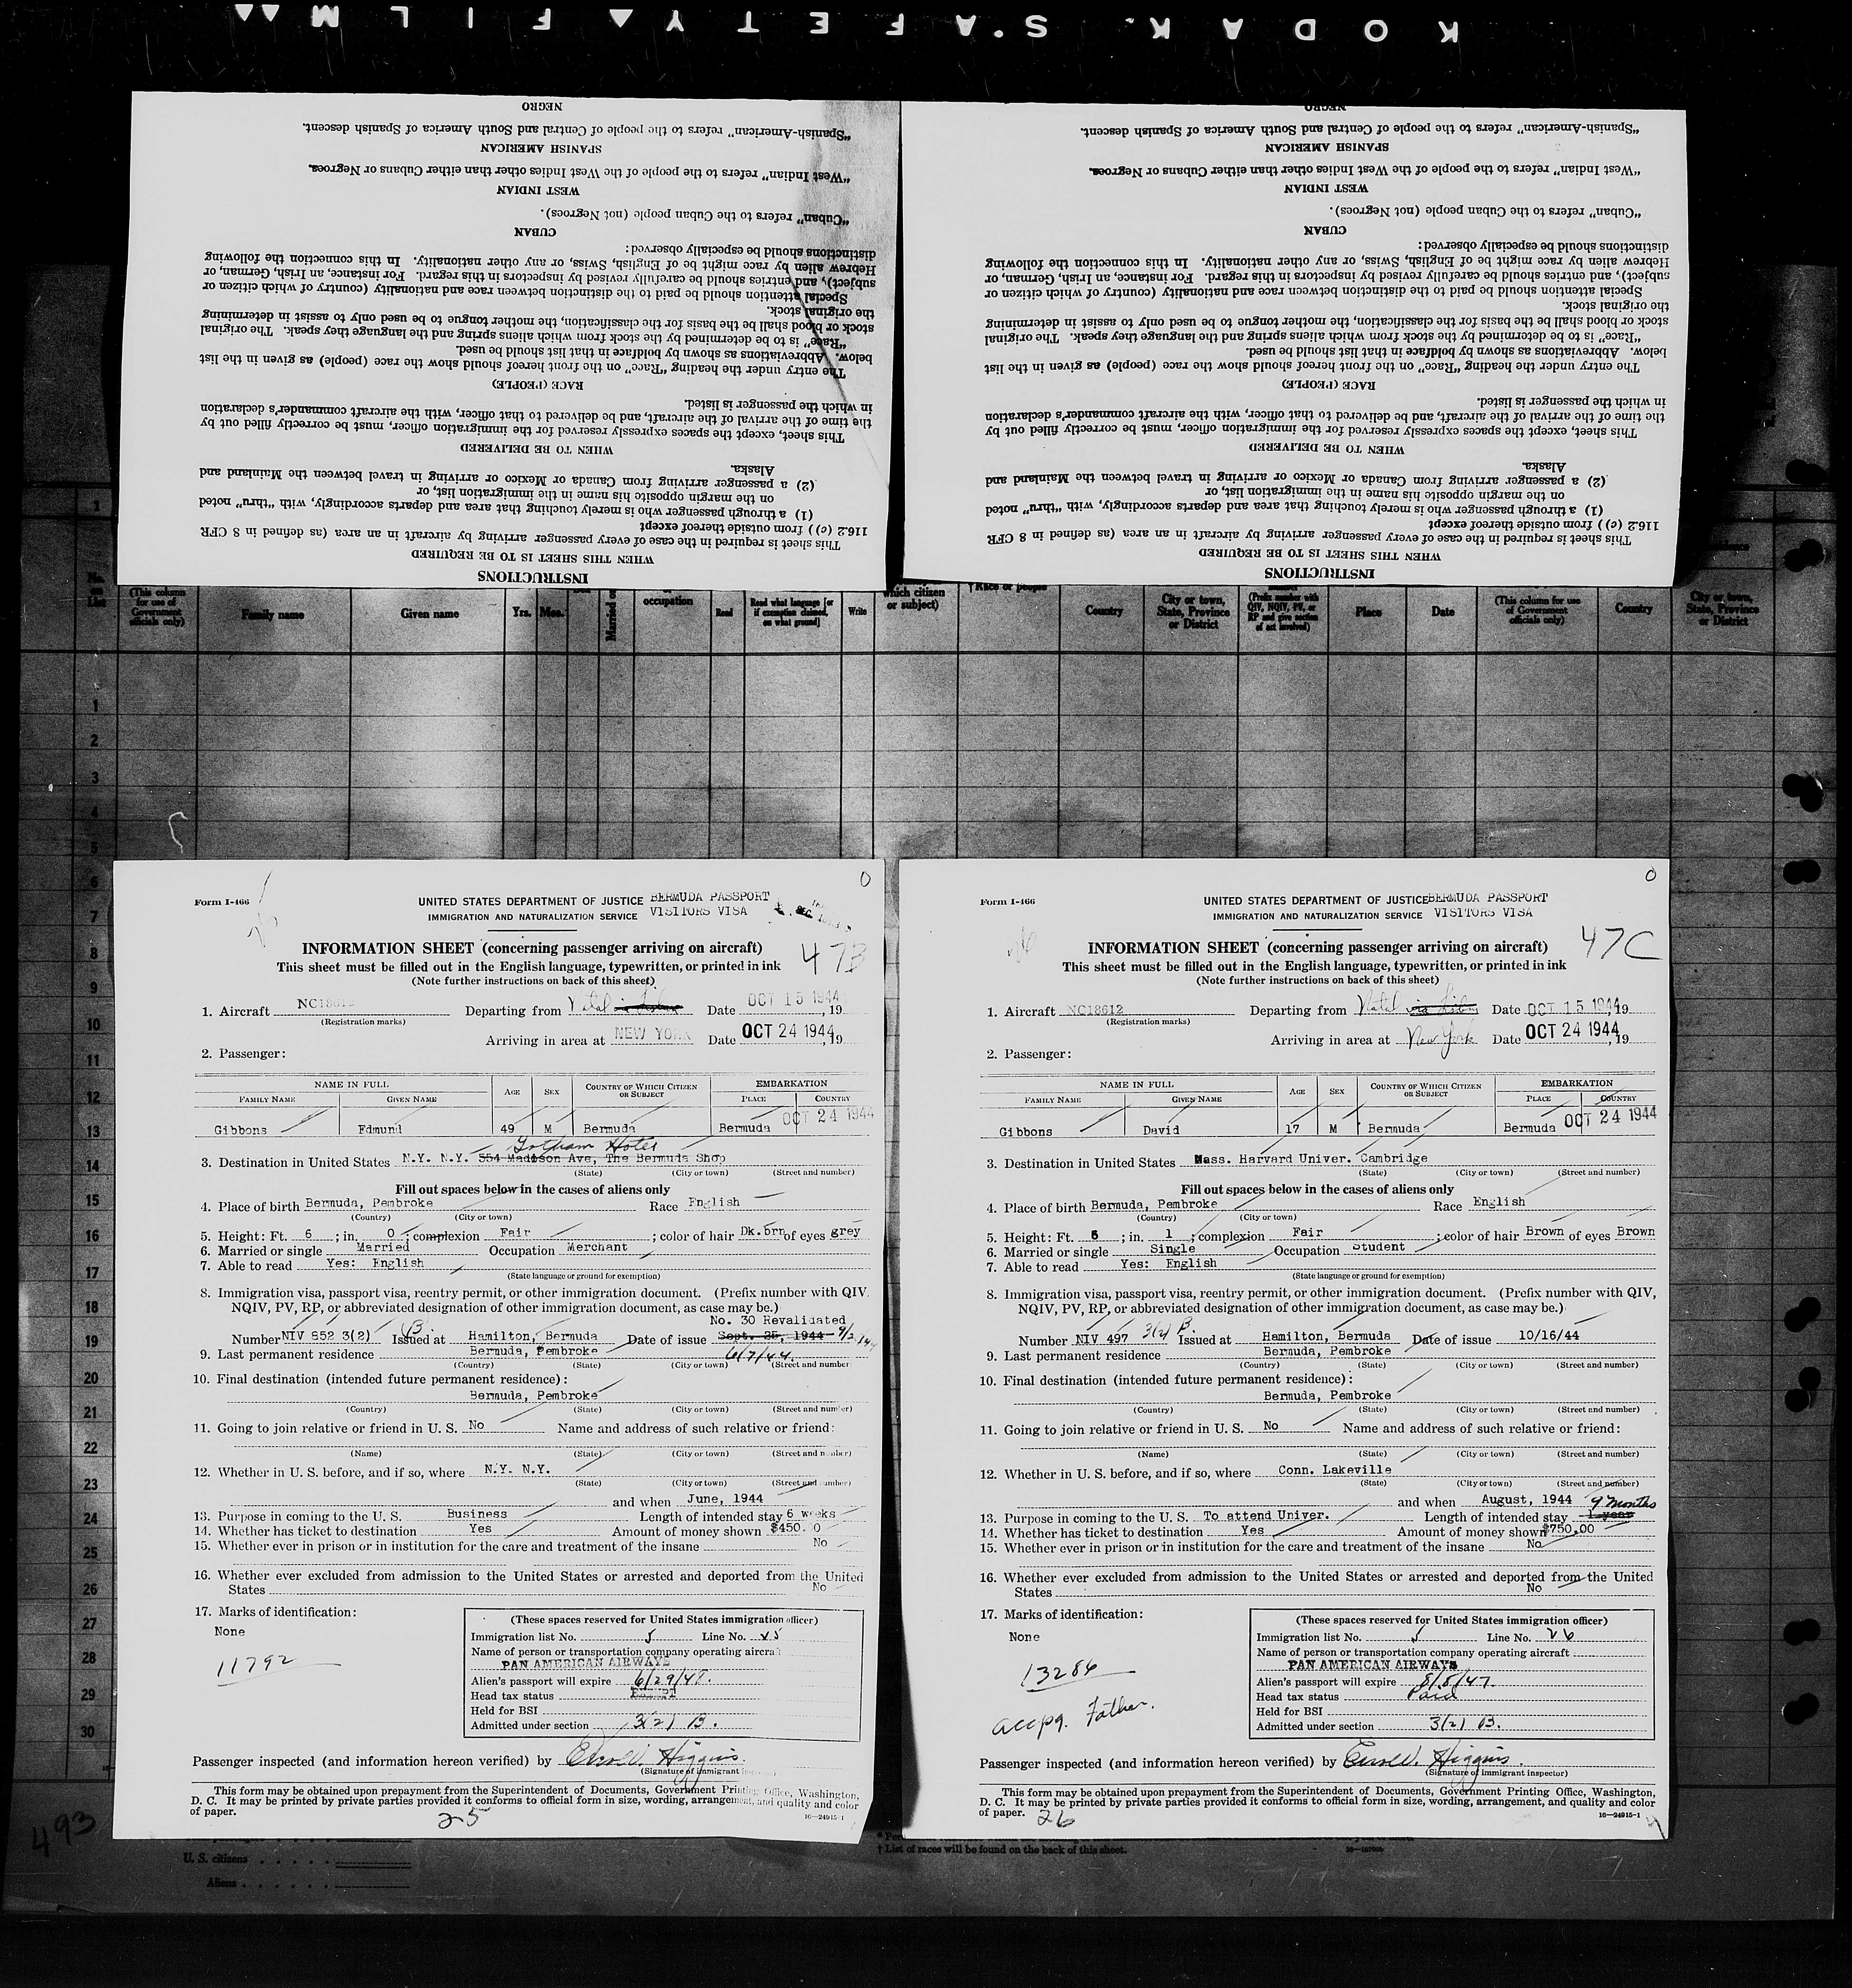 KODAK S'AFETY FILM
INSTRUCTIONS
WHEN THIS SHEET IS TO BE REQUIRED
This sheet is required in the case of every passenger arriving by aircraft in an area (as defined in 8 CFR
116.2 (c)) from outside thereof except
(1) a through passenger who is merely touching that area and departs accordingly, with "thru" noted
on the margin opposite his name in the immigration list, or
(2) a passenger arriving from Canada or Mexico or arriving in travel between the Mainland and
Alaska.
WHEN TO BE DELIVERED
This sheet, except the spaces expressly reserved for the immigration officer, must be correctly filled out by
the time of the arrival of the aircraft, and be delivered to that officer, with the aircraft commander's declaration
in which the passenger is listed.
RACE (PEOPLE)
The entry under the heading "Race" on the front hereof should show the race (people) as given in the list
below. Abbreviations as shown by boldface in that list should be used.
"Race" is to be determined by the stock from which aliens spring and the language they speak. The original
stock or blood shall be the basis for the classification, the mother tongue to be used only to assist in determining
the original stock.
Special attention should be paid to the distinction between race and nationality (country of which citizen or
subject), and entries should be carefully revised by inspectors in this regard. For instance, an Irish, German, or
Hebrew alien by race might be of English, Swiss, or any other nationality. In this connection the following
distinctions should be especially observed:
CUBAN
"Cuban" refers to the Cuban people (not Negroes).
WEST INDIAN
"West Indian" refers to the people of the West Indies other than either Cubans or Negroes.
SPANISH AMERICAN
"Spanish-American" refers to the people of Central and South America of Spanish descent.
NEGRO
INSTRUCTIONS
WHEN THIS SHEET IS TO BE REQUIRED
This sheet is required in the case of every passenger arriving by aircraft in an area (as defined in 8 CFR
116.2 (c)) from outside thereof except
(1) a through passenger who is merely touching that area and departs accordingly, with "thru" noted
on the margin opposite his name in the immigration list, or
(2) a passenger arriving from Canada or Mexico or arriving in travel between the Mainland and
Alaska.
WHEN TO BE DELIVERED
This sheet, except the spaces expressly reserved for the immigration officer, must be correctly filled out by
the time of the arrival of the aircraft, and be delivered to that officer, with the aircraft commander's declaration
in which the passenger is listed.
RACE (PEOPLE)
The entry under the heading "Race" on the front hereof should show the race (people) as given in the list
below. Abbreviations as shown by boldface in that list should be used.
"Race" is to be determined by the stock from which aliens spring and the language they speak. The original
stock or blood shall be the basis for the classification, the mother tongue to be used only to assist in determining
the original stock.
Special attention should be paid to the distinction between race and nationality (country of which citizen or
subject), and entries should be carefully revised by inspectors in this regard. For instance, an Irish, German, or
Hebrew alien by race might be of English, Swiss, or any other nationality. In this connection the following
distinctions should be especially observed:
CUBAN
"Cuban" refers to the Cuban people (not Negroes).
WEST INDIAN
"West Indian" refers to the people of the West Indies other than either Cubans or Negroes.
SPANISH AMERICAN
"Spanish-American" refers to the people of Central and South America of Spanish descent.
NEGRO
1
No. on List (This column for use of Government officials only) Family name Given name Yrs. Mos. Married or occupation Read Read what language [or if exemption claimed, on what ground] Write which citizen or subject) † Race or people Country City or town, State, Province or District (Prefix number with QIV, NQIV, PV, or RP and give section of act involved) Place Date (This column for use of Government officials only) Country City or town, State, Province or District
1
2
3
4
5
6
7
8
9
10
11
12
13
14
15
16
17
18
19
20
21
22
23
24
25
26
27
28
29
30
Form I-466
UNITED STATES DEPARTMENT OF JUSTICE BERMUDA PASSPORT
IMMIGRATION AND NATURALIZATION SERVICE VISITORS VISA
0
INFORMATION SHEET (concerning passenger arriving on aircraft) 47B
This sheet must be filled out in the English language, typewritten, or printed in ink
(Note further instructions on back of this sheet)
1. Aircraft NC18612 Departing from Natal Date OCT 15 1944, 19
(Registration marks)
Arriving in area at NEW YORK Date OCT 24 1944, 19
2. Passenger:
NAME IN FULL AGE SEX COUNTRY OF WHICH CITIZEN OR SUBJECT EMBARKATION
FAMILY NAME GIVEN NAME PLACE COUNTRY
Gibbons Edmund 49 M Bermuda Bermuda OCT 24 1944
Gotham Hotel
3. Destination in United States N.Y. N.Y. 554 Madison Ave, The Bermuda Shop
(State) (City or town) (Street and number)
Fill out spaces below in the cases of aliens only
4. Place of birth Bermuda, Pembroke Race English
(Country) (City or town)
5. Height: Ft. 6 ; in. 0 ; complexion Fair ; color of hair Dk.brn of eyes grey
6. Married or single Married Occupation Merchant
7. Able to read Yes: English
(State language or ground for exemption)
8. Immigration visa, passport visa, reentry permit, or other immigration document. (Prefix number with QIV,
NQIV, PV, RP, or abbreviated designation of other immigration document, as case may be.)
No. 30 Revalidated
Number NIV 852 3(2) B Issued at Hamilton, Bermuda Date of issue Sept. 25, 1944
6/7/44.
9. Last permanent residence Bermuda, Pembroke
(Country) (State) (City or town) (Street and number
10. Final destination (intended future permanent residence):
Bermuda, Pembroke
(Country) (State) (City or town) (Street and number)
11. Going to join relative or friend in U. S. No Name and address of such relative or friend:
(Name) (State) (City or town) (Street and number)
12. Whether in U. S. before, and if so, where N.Y. N.Y.
(State) (City or town) (Street and number)
and when June, 1944
13. Purpose in coming to the U. S. Business Length of intended stay 6 weeks
14. Whether has ticket to destination Yes Amount of money shown $450. 0
15. Whether ever in prison or in institution for the care and treatment of the insane No
16. Whether ever excluded from admission to the United States or arrested and deported from the United
States No
17. Marks of identification:
None
11792
(These spaces reserved for United States immigration officer)
Immigration list No. 5 Line No. 25
Name of person or transportation company operating aircraft
PAN AMERICAN AIRWAYS
Alien's passport will expire 6/29/47.
Head tax status EXEMPT
Held for BSI
Admitted under section 3(2) B.
Passenger inspected (and information hereon verified) by Errol W. Higgins.
(Signature of immigrant
This form may be obtained upon prepayment from the Superintendent of Documents, Government Printing Office, Washington,
D. C. It may be printed by private parties provided it conforms to official form in size, wording, arrangement, and quality and color
of paper. 16—24915-1
25
Form I-466
UNITED STATES DEPARTMENT OF JUSTICE BERMUDA PASSPORT
IMMIGRATION AND NATURALIZATION SERVICE VISITORS VISA
0
INFORMATION SHEET (concerning passenger arriving on aircraft) 47C
This sheet must be filled out in the English language, typewritten, or printed in ink
(Note further instructions on back of this sheet)
1. Aircraft NC18612 Departing from Natal Date OCT 15 1944, 19
(Registration marks)
Arriving in area at New York Date OCT 24 1944, 19
2. Passenger:
NAME IN FULL AGE SEX COUNTRY OF WHICH CITIZEN OR SUBJECT EMBARKATION
FAMILY NAME GIVEN NAME PLACE COUNTRY
Gibbons David 17 M Bermuda Bermuda OCT 24 1944
3. Destination in United States Mass. Harvard Univer. Cambridge
(State) (City or town) (Street and number)
Fill out spaces below in the cases of aliens only
4. Place of birth Bermuda, Pembroke Race English
(Country) (City or town)
5. Height: Ft. 6 ; in. 1 ; complexion Fair ; color of hair Brown of eyes Brown
6. Married or single Single Occupation Student
7. Able to read Yes: English
(State language or ground for exemption)
8. Immigration visa, passport visa, reentry permit, or other immigration document. (Prefix number with QIV,
NQIV, PV, RP, or abbreviated designation of other immigration document, as case may be.)
Number NIV 497 3(2) B. Issued at Hamilton, Bermuda Date of issue 10/16/44
9. Last permanent residence Bermuda, Pembroke
(Country) (State) (City or town) (Street and number)
10. Final destination (intended future permanent residence):
Bermuda, Pembroke
(Country) (State) (City or town) (Street and number)
11. Going to join relative or friend in U. S. No Name and address of such relative or friend:
(Name) (State) (City or town) (Street and number)
12. Whether in U. S. before, and if so, where Conn. Lakeville
(State) (City or town) (Street and number)
and when August, 1944 9 months
13. Purpose in coming to the U. S. To attend Univer. Length of intended stay 1 year
14. Whether has ticket to destination Yes Amount of money shown $750.00
15. Whether ever in prison or in institution for the care and treatment of the insane No
16. Whether ever excluded from admission to the United States or arrested and deported from the United
States No
17. Marks of identification:
None
13286
accpg. Father.
(These spaces reserved for United States immigration officer)
Immigration list No. 5 Line No. 26
Name of person or transportation company operating aircraft
PAN AMERICAN AIRWAYS
Alien's passport will expire 8/8/47.
Head tax status Paid
Held for BSI
Admitted under section 3(2) B.
Passenger inspected (and information hereon verified) by Errol W. Higgins.
(Signature of immigrant inspector)
This form may be obtained upon prepayment from the Superintendent of Documents, Government Printing Office, Washington,
D. C. It may be printed by private parties provided it conforms to official form in size, wording, arrangement, and quality and color
of paper. 16—24915-1
26
493
U. S. citizens
Aliens
† List of races will be found on the back of this sheet.